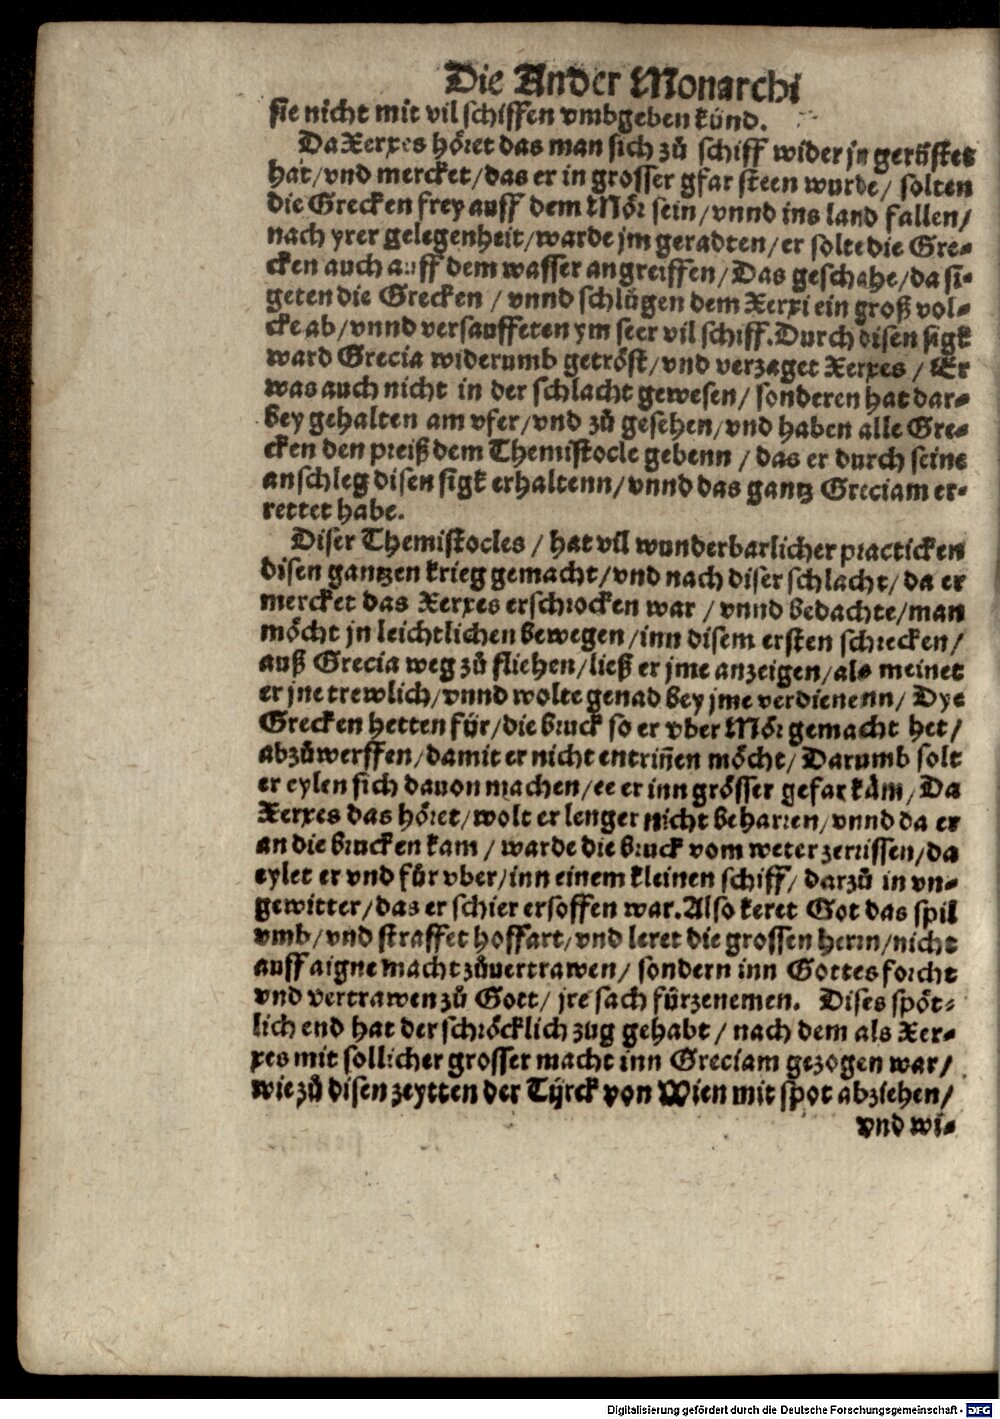 Die Ander Monarchi
sie nicht mit vil schiffen vmbgeben künd.
Da Xerxes höret das man sich zů schiff wider jn gerüstet
hat/vnd mercket/das er in grosser gfar steen wurde/ solten
die Grecken frey auff dem Mör sein/vnnd ins land fallen/
nach yrer gelegenheit/warde jm geradten/er solte die Gre⸗
cken auch auff dem wasser angreiffen/Das geschahe/da si⸗
geten die Grecken / vnnd schlůgen dem Xerxi ein groß vol⸗
cke ab/vnnd versauffeten ym seer vil schiff.Durch disen sigk
ward Grecia widerumb getröst/vnd verzaget Xerxes / Er
was auch nicht in der schlacht gewesen/ sonderen hat dar⸗
bey gehalten am vfer/vnd zů gesehen/vnd haben alle Gre⸗
cken den preiß dem Themistocle gebenn / das er durch seine
anschleg disen sigk erhaltenn/vnnd das gantz Greciam er⸗
rettet habe.
Diser Themistocles / hat vil wunderbarlicher practicken
disen gantzen krieg gemacht/vnd nach diser schlacht/ da er
mercket das Xerxes erschrocken war / vnnd bedachte/man
möcht jn leichtlichen bewegen/inn disem ersten schrecken/
auß Grecia weg zů fliehen/ließ er jme anzeigen/als meinet
er jne trewlich/vnnd wolte genad bey jme verdienenn/ Dye
Grecken hetten für/die bruck so er vber Mör gemacht het/
abzůwerffen/damit er nicht entriñen möcht/ Darumb solt
er eylen sich dauon machen/ee er inn grösser gefar käm/Da
Xerxes das höret/wolt er lenger nicht beharren/vnnd da er
an die brucken kam / warde die bruck vom weter zerrissen/da
eylet er vnd fůr vber/inn einem kleinen schiff/ darzů in vn⸗
gewitter/das er schier ersoffen war.Also keret Got das spil
vmb/vnd straffet hoffart/vnd leret die grossen herrn/nicht
auff aigne macht zůuertrawen/ sondern inn Gottes forcht
vnd vertrawen zů Gott/ jre sach fürzenemen. Dises spöt⸗
lich end hat der schröcklich zug gehabt / nach dem als Xer⸗
xes mit sollicher grosser macht inn Greciam gezogen war/
wie zů disen zeytten der Türck von Wien mit spot abziehen/
vnd wi⸗
Digitalisierung gefördert durch die Deutsche Forschungsgemeinschaft - DFG